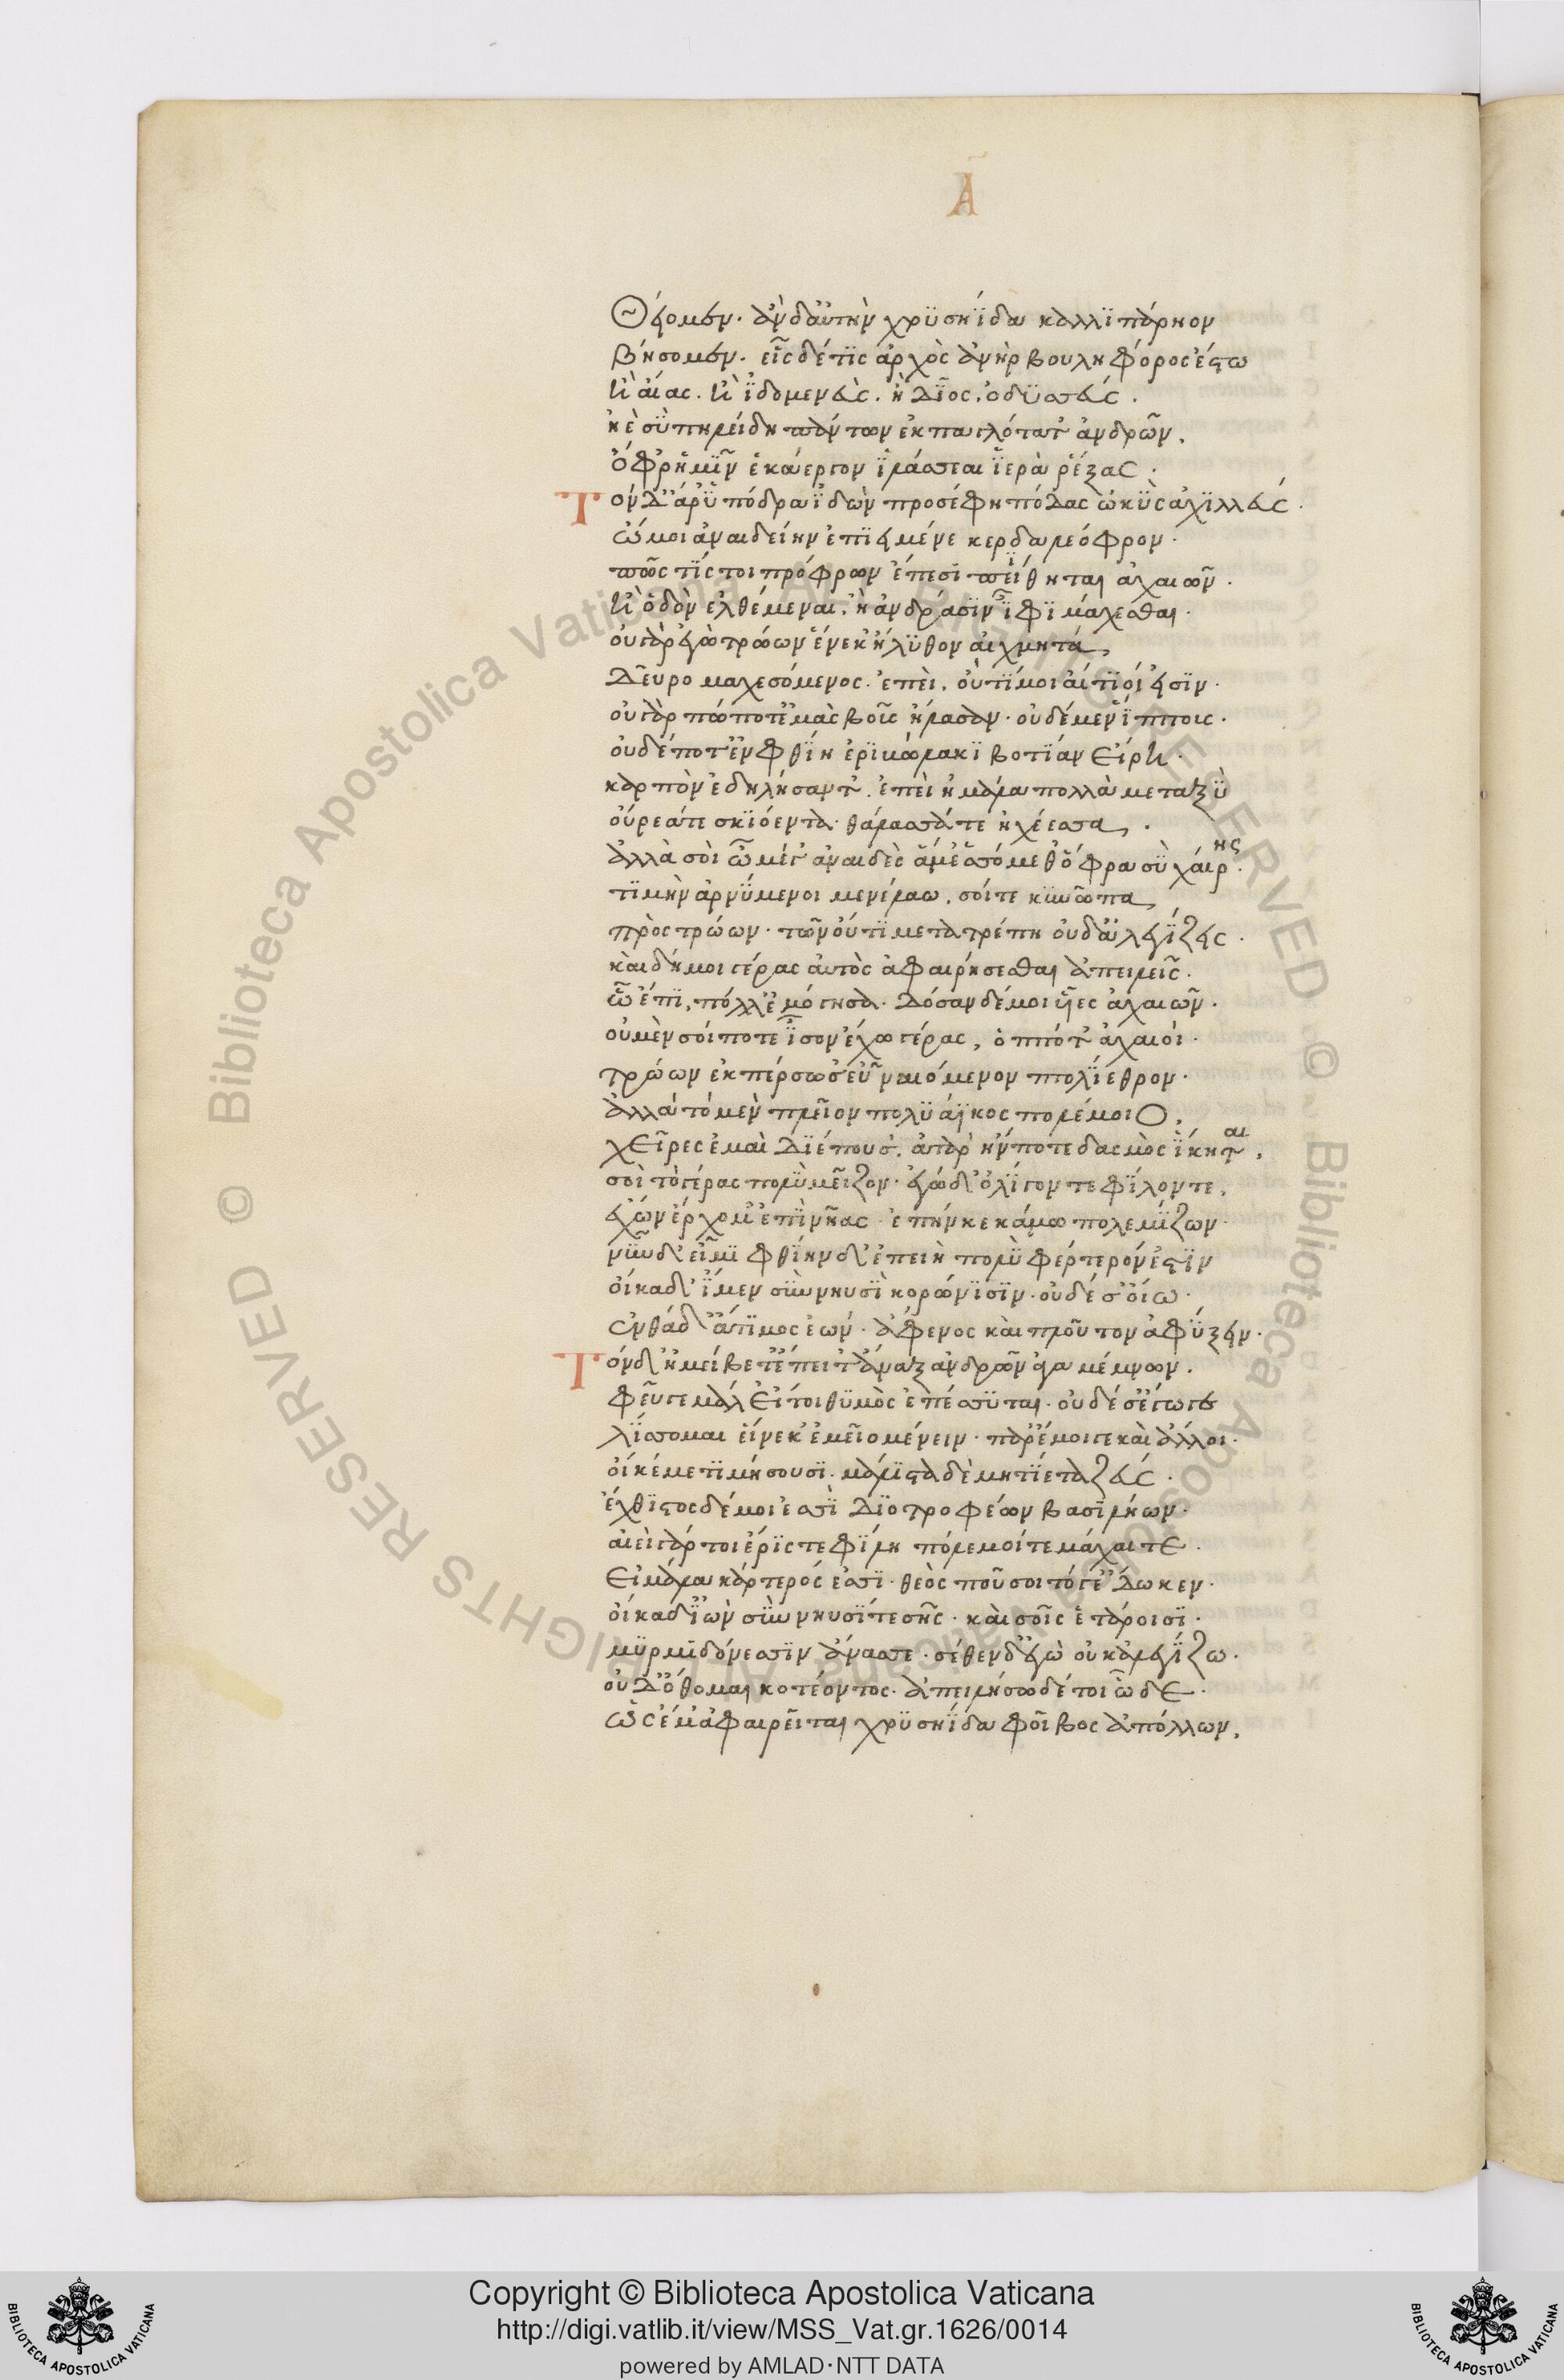 Α
Θείομεν· ἂν δ' αὐτὴν χρϋσηΐδα καλλϊπάρηον
βήσομεν· εἷς δέ τϊς ἀρχὸς ἀνὴρ βουληφόρος ἔστω
ἢ αἴας· ἢ ἰ̈δομενεὺς· ἢ δῖος ὀδϋσσεύς·
ἠὲ σὺ πηλείδη πάντων ἐκπαγλότατ' ἀνδρῶν·
ὄφρ' ἧμϊν ἑκάεργον ἱ̈λάσσεαι ἱ̈ερὰ ῥέξας·
Τὸν δ' ἄρ' ὑ̈πόδρα ἰ̈δὼν προσέφη πόδας ὠκῢς ἀχϊλλεύς·
ὤμοι ἀναιδείην ἐπϊειμένε κερδαλεόφρον·
πῶς τΐς τοι πρόφρων ἔπεσϊ πείθηται ἀχαιῶν·
ἢ ὁδὸν ἐλθέμεναι· ἢ ἀνδράσϊν ἶ̈φϊ μάχεσθαι·
οὐ γὰρ ἐγὼ τρώων ἕνεκ' ἤλϋθον αἰχμητάων
δεῦρο μαχεσόμενος· ἐπεὶ οὔτϊ μοι αἴτϊοί εἰσϊν·
οὐ γὰρ πώποτ' ἐμὰς βοῦς ἤλασαν· οὐδὲ μὲν ἵ̈ππους·
οὐδέ ποτ' ἐν φθΐη ἐρϊβώλακϊ βωτϊανείρη·
καρπὸν ἐδηλήσαντ'· ἐπεὶ ἢ μάλα πολλὰ μεταξῢ
οὔρεά τε σκϊόεντα· θάλασσά τε ἠχήεσσα·
ἀλλὰ σοὶ ὦ μέγ' ἀναιδὲς ἅμ' ἑσπόμεθ' ὄφρα σῢ χαίρης·
τϊμὴν ἀρνΰμενοι μενελάω· σοί τε κυνῶπα
πρὸς τρώων· τῶν οὔτϊ μετατρέπη οὐδ' ἀλεγΐζεις·
καὶ δή μοι γέρας αὐτὸς ἀφαιρήσεσθαι ἀπειλεῖς·
ὧ ἔπϊ πόλλ' ἐμόγησα· δόσαν δέ μοι υἷες ἀχαιῶν·
οὐ μὲν σοί ποτε ἶ̈σον ἔχω γέρας, ὁππότ' ἀχαιοὶ·
τρώων ἐκπέρσωσ' εὖ ναιόμενον πτολΐεθρον·
ἀλλὰ τὸ μὲν πλεῖον πολϋάϊκος πολέμοιο,
χεῖρες ἐμαὶ δϊέπουσ'· ἀτὰρ ἤν ποτε δασμὸς ἵ̈κηται,
σοὶ τὸ γέρας πολὺ μεῖζον· ἐγὼ δ' ὀλΐγον τε φΐλον τε,
ἔχων ἔρχομ' ἐπῒ νῆας· ἐπήν κε κάμω πολεμΐζων·
νῦν δ' εἶμϊ φθΐην δ' ἐπειὴ πολὺ φέρτερόν ἐστϊν
οἴκαδ' ἴ̈μεν σὺν νηυσῒ κορωνΐσϊν· οὐδέ σ' ὀΐω·
ἐνθάδ' ἄτϊμος ἐών· ἄφενος καὶ πλοῦτον ἀφΰξειν·
Τὸν δ' ἠμείβετ' ἔπειτ' ἄναξ ἀνδρῶν ἀγαμέμνων·
φεῦγε μάλ' εἴ τοι θϋμὸς ἐπέσσϋται· οὐδέ σ' ἔγωγε
λΐσσομαι εἵνεκ' ἐμεῖο μένειν· παρ' ἔμοιγε καὶ ἄλλοι·
οἵ κέ με τϊμήσουσϊ· μάλϊστα δὲ μητΐετα ζεύς·
ἔχθϊστος δέ μοι ἐσσϊ δϊοτροφέων βασϊλήων·
αἰεὶ γάρ τοι ἔρϊς τε φΐλη πόλεμοί τε μάχαι τε·
εἰ μάλα κάρτερός ἐσσϊ· θεὸς ποῦ σοι τόγ' ἔδωκεν·
οἴκαδ' ἰ̈ὼν σὺν νηυσΐ τε σῆς· καὶ σοῖς ἑτάροισϊ·
μϋρμϊδόνεσσϊν ἄνασσε· σέθεν δ' ἐγὼ οὐκ ἀλεγΐζω·
οὐδ' ὄθομαι κοτέοντος· ἀπειλήσω δέ τοι ὧδε·
ὡς ἔμ' ἀφαιρεῖται χρϋσηΐδα φοῖβος ἀπόλλων,
Copyright © Biblioteca Apostolica Vaticana
http://digi.vatlib.it/view/MSS_Vat.gr.1626/0014
powered by AMLAD·NTT DATA
BIBLIOTECA APOSTOLICA VATICANA
BIBLIOTECA APOSTOLICA VATICANA
© Biblioteca Apostolica Vaticana ALL RIGHTS RESERVED © Biblioteca Apostolica Vaticana ALL RIGHTS RESERVED